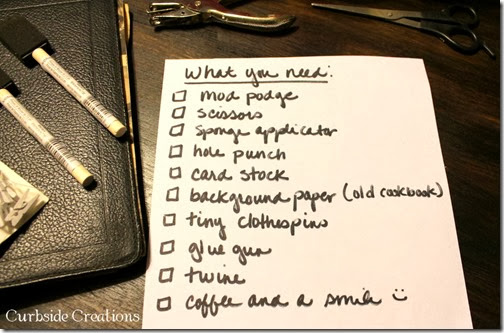 What you need:
mod podge
scissors
sponge applicator
hole punch
card stock
background paper (old cookbook)
tiny clothespins
glue gun
twine
coffee and a smile
Curbside Creations